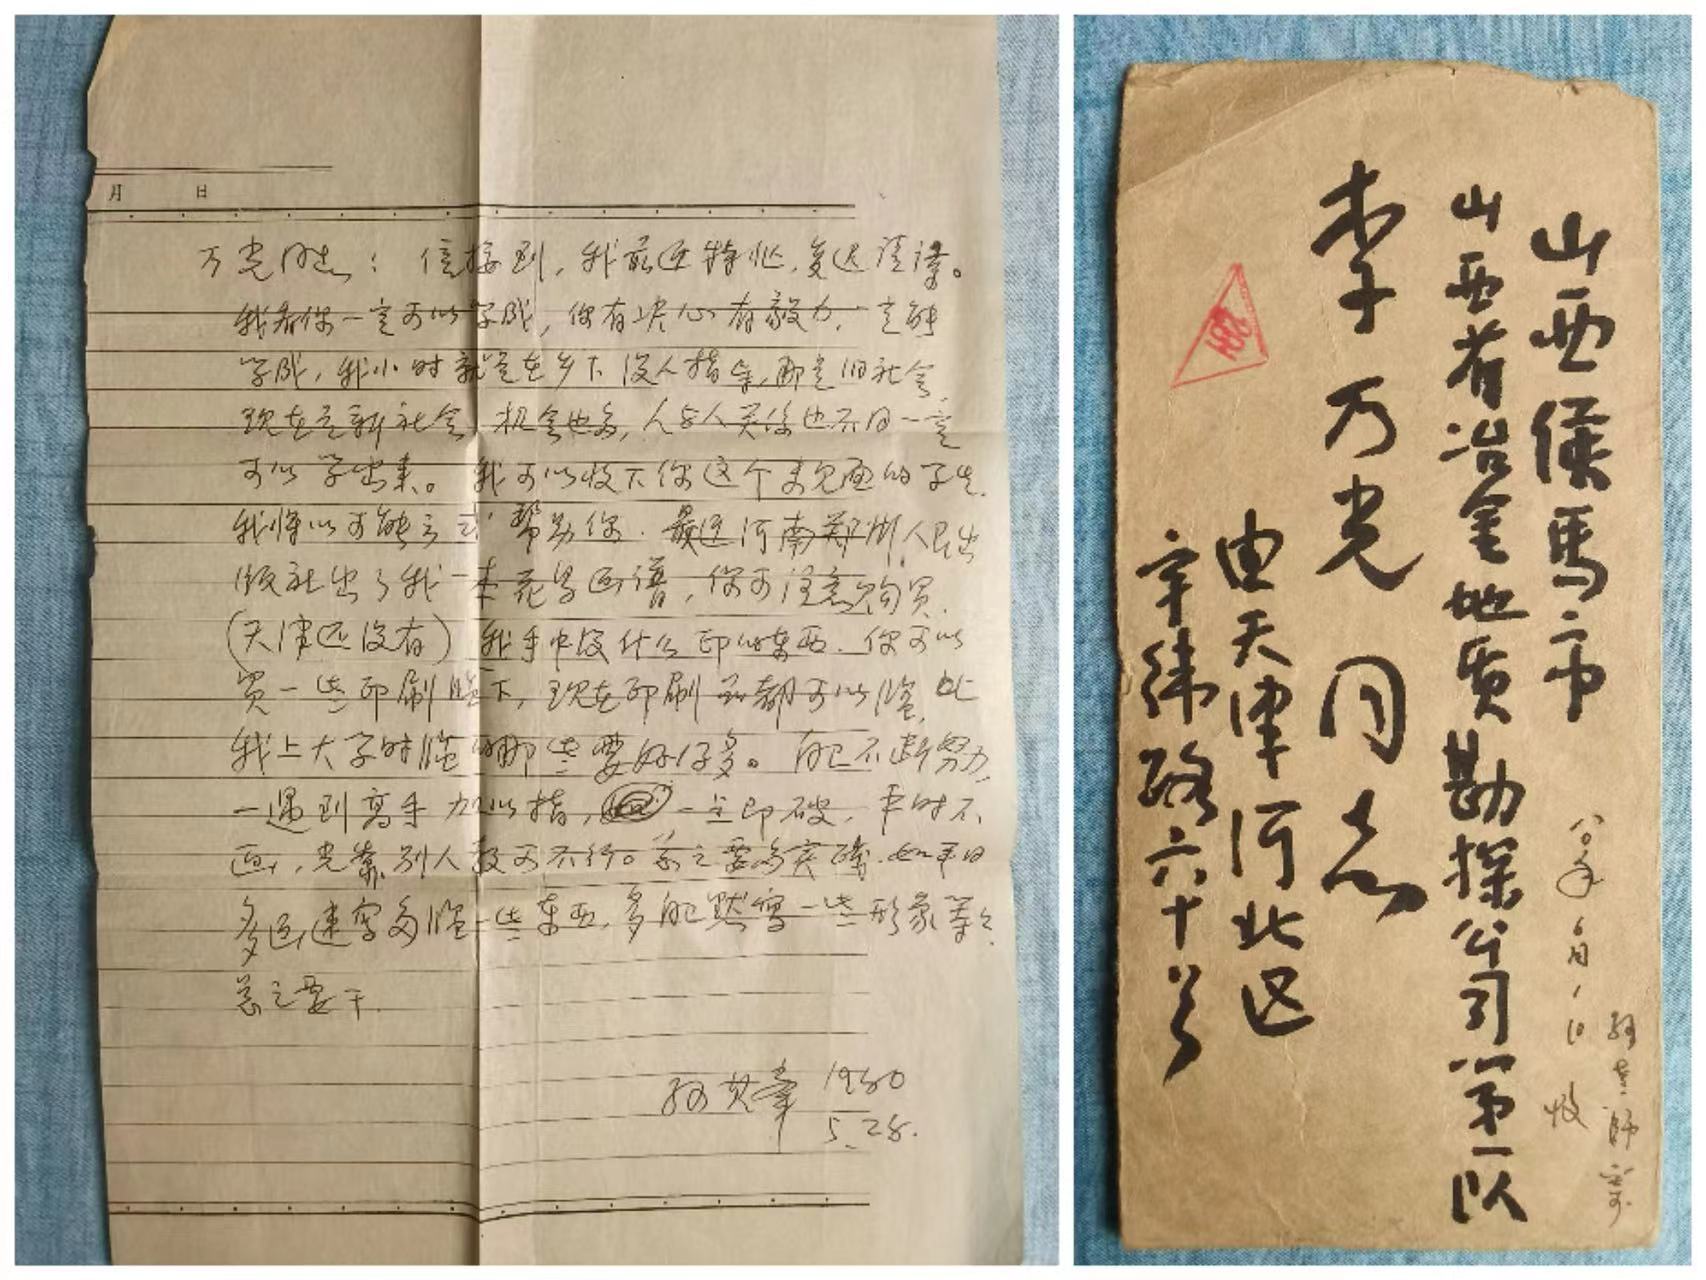 月 日
万光同志：信接到，我最近特忙，复迟请谅。
我看你一定可以学成，你有决心有毅力，一定能
学成，我小时就是在乡下没人指导，那是旧社会，
现在是新社会，机会也多，人与人关系也不同一定
可以学出来。我可以收下你这个未见面的学生，
我将以可能方式帮助你。最近河南郑州人民出
版社出了我一本花鸟画谱，你可注意购买，
(天津还没有) 我手中没什么印的东西。你可以
买一些印刷临下，现在印刷品都可以临，比
我上大学时临的那些要好得多。自己不断努力，
一遇到高手加以指，一点即破，平时不
画，光靠别人教可不行。总之要多实践，如平日
多画速写多临一些东西，多自己默写一些形象等等
总之要干
孙其峰 1980
5.28.
山西侯马市
山西省冶金地质勘探公司第一队
李万光同志
由天津河北区
宇纬路六十号
284
八〇年六月1日收
孙老师寄